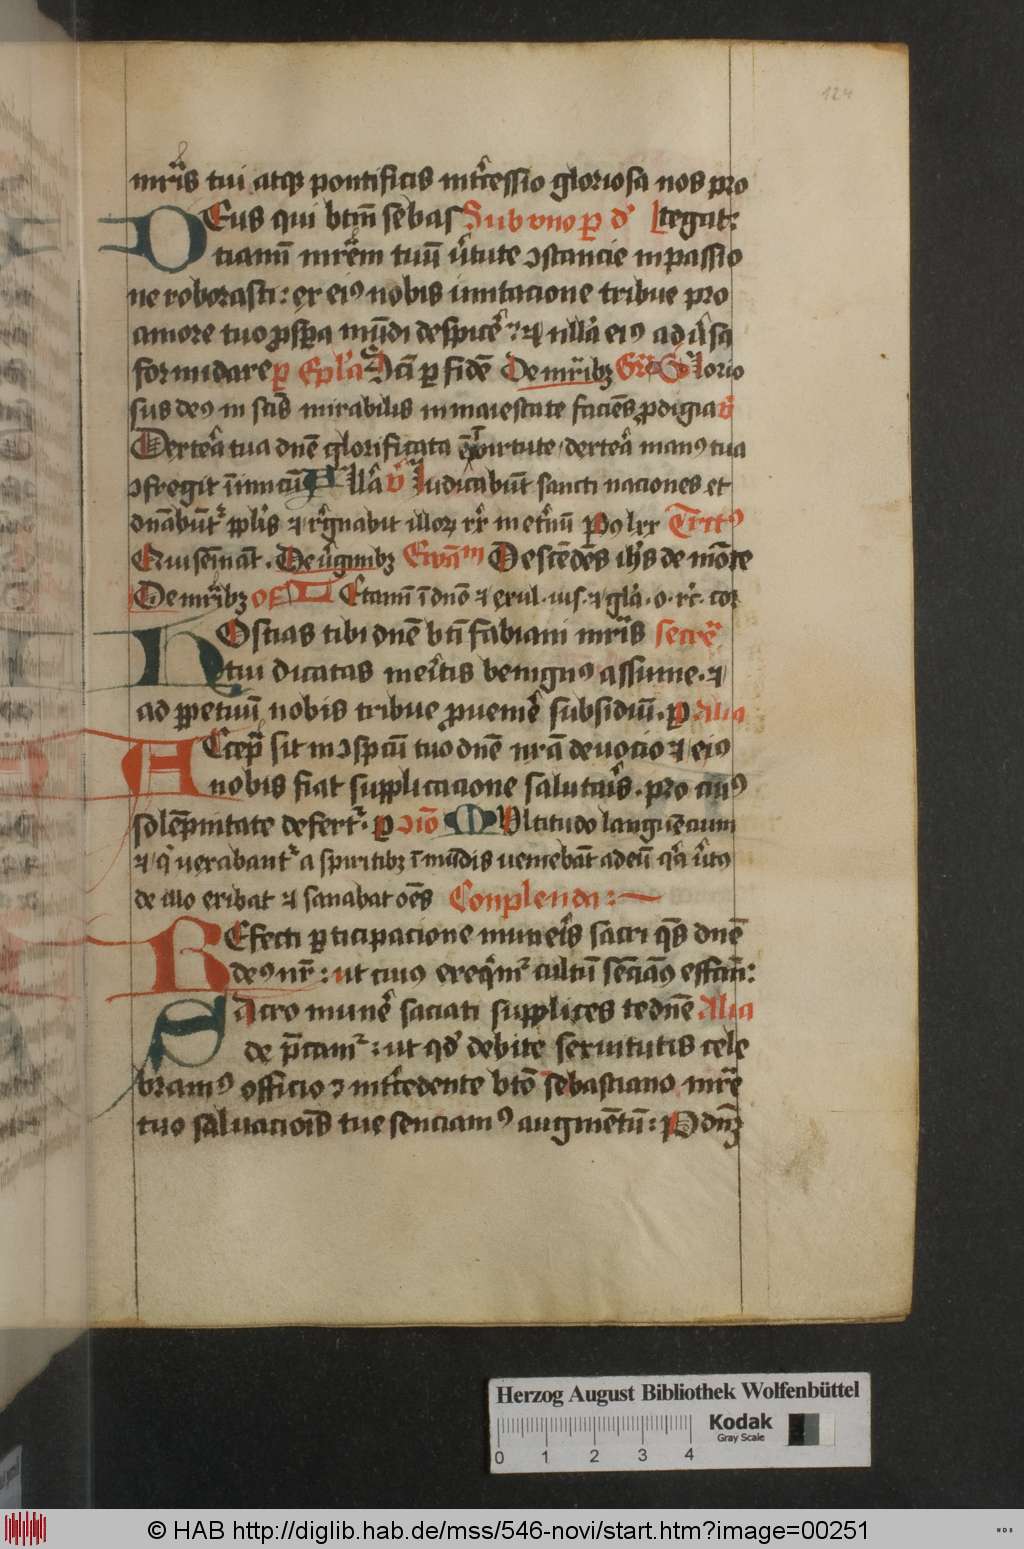 124
mr̄is tui atqꝫ pontificis int̄cessio gloriosa nos pro
DEus qui btm̄ sebas Sub vno ꝑ d' tegat:
tianū mr̄em tuū v̄tute ↄstancie in passio
ne roborasti: ex eiꝰ nobis imitacione tribue pro
amore tuo ꝓspa mūdi despice᷑: ⁊ nlla eiꝰ adūsa
formidare ꝑ Epl'a Sc̄i ꝑ fidē De mr̄ibꝫ Gr̄ Glorio
sus deꝰ in sc̄is mirabilis in maiestate faciēs ꝓdigia v̄
Dextera tua dnē glorificata ē in virtute dextera manꝰ tua
ↄfregit inimicū Alla v̄ Judicabūt sancti naciones et
dnabūt᷑ ppl'is ⁊ regnabit illoꝝ in et̄nū Po lxx Tctꝰ
Qui seīant . De v̄ginibꝫ Ewā Descēdēs ih̄s de mōte
De mr̄ibꝫ of Letamī ī dnō ⁊ exul . ius . ⁊ gla . o . rc̄ . cor
HOstias tibi dnē bti fabiani mr̄is secre᷑
tui dicatas meritis benignꝰ assume . ⁊
ad ꝑpetuū nobis tribue ꝓuenire subsidiū . ꝑ Alia
ACcepta sit in ↄspc̄u tuo dnē nr̄a deuocio ⁊ eiꝰ
nobis fiat supplicacione salutaris . pro cuiꝰ
solēpnitate defert᷑ . ꝑ ↄīo MUltitudo langwēcium
⁊ q̄ vexabant᷑ a spiritibꝫ īmūdis veniebāt ad eū qa v̄tꝰ
de illo exibat ⁊ sanabat oēs Conplenda :
REfecti ꝑticipacione muneris sacri qs̄ dnē
deꝰ nr̄ : ut cuiꝰ exeqim᷑ cultū sēciamꝰ effcm̄ :
SAcro munere saciati supplices te dnē Alia
de p̄cam᷑ : ut qd' debite seruitutis cele
bramꝰ officio ⁊ int̄cedente btō sebastiano mr̄e
tuo saluacioīs tue senciamꝰ augmētū : P dnm̄
Herzog August Bibliothek Wolfenbüttel
Kodak
Gray Scale
0 1 2 3 4
© HAB http://diglib.hab.de/mss/546-novi/start.htm?image=00251